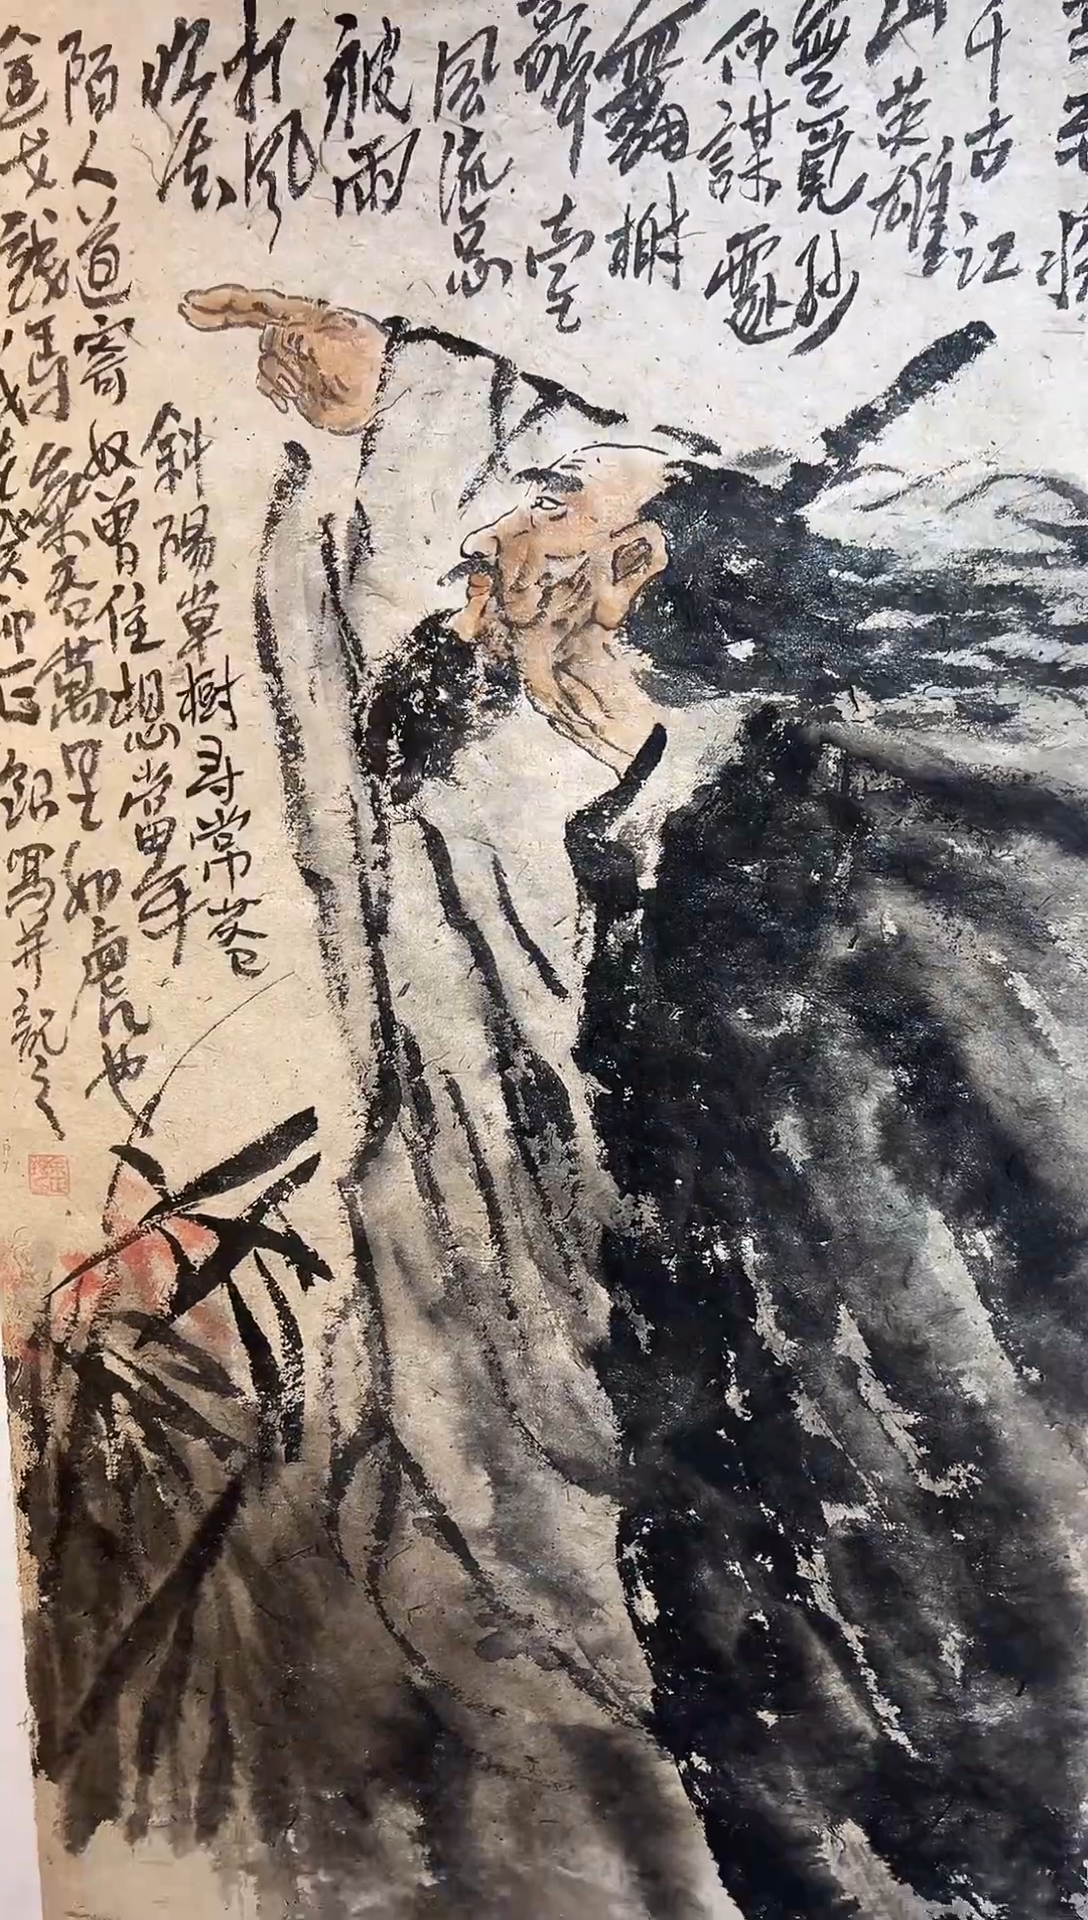 千古江
山英雄
無覓孙
仲謀處
舞榭
歌臺
風流总
被雨
打風
吹去
斜陽草樹尋常巷
陌人道寄奴曾住想當年
金戈鐵馬氣吞萬里如虎也
癸卯正銀寫并記之